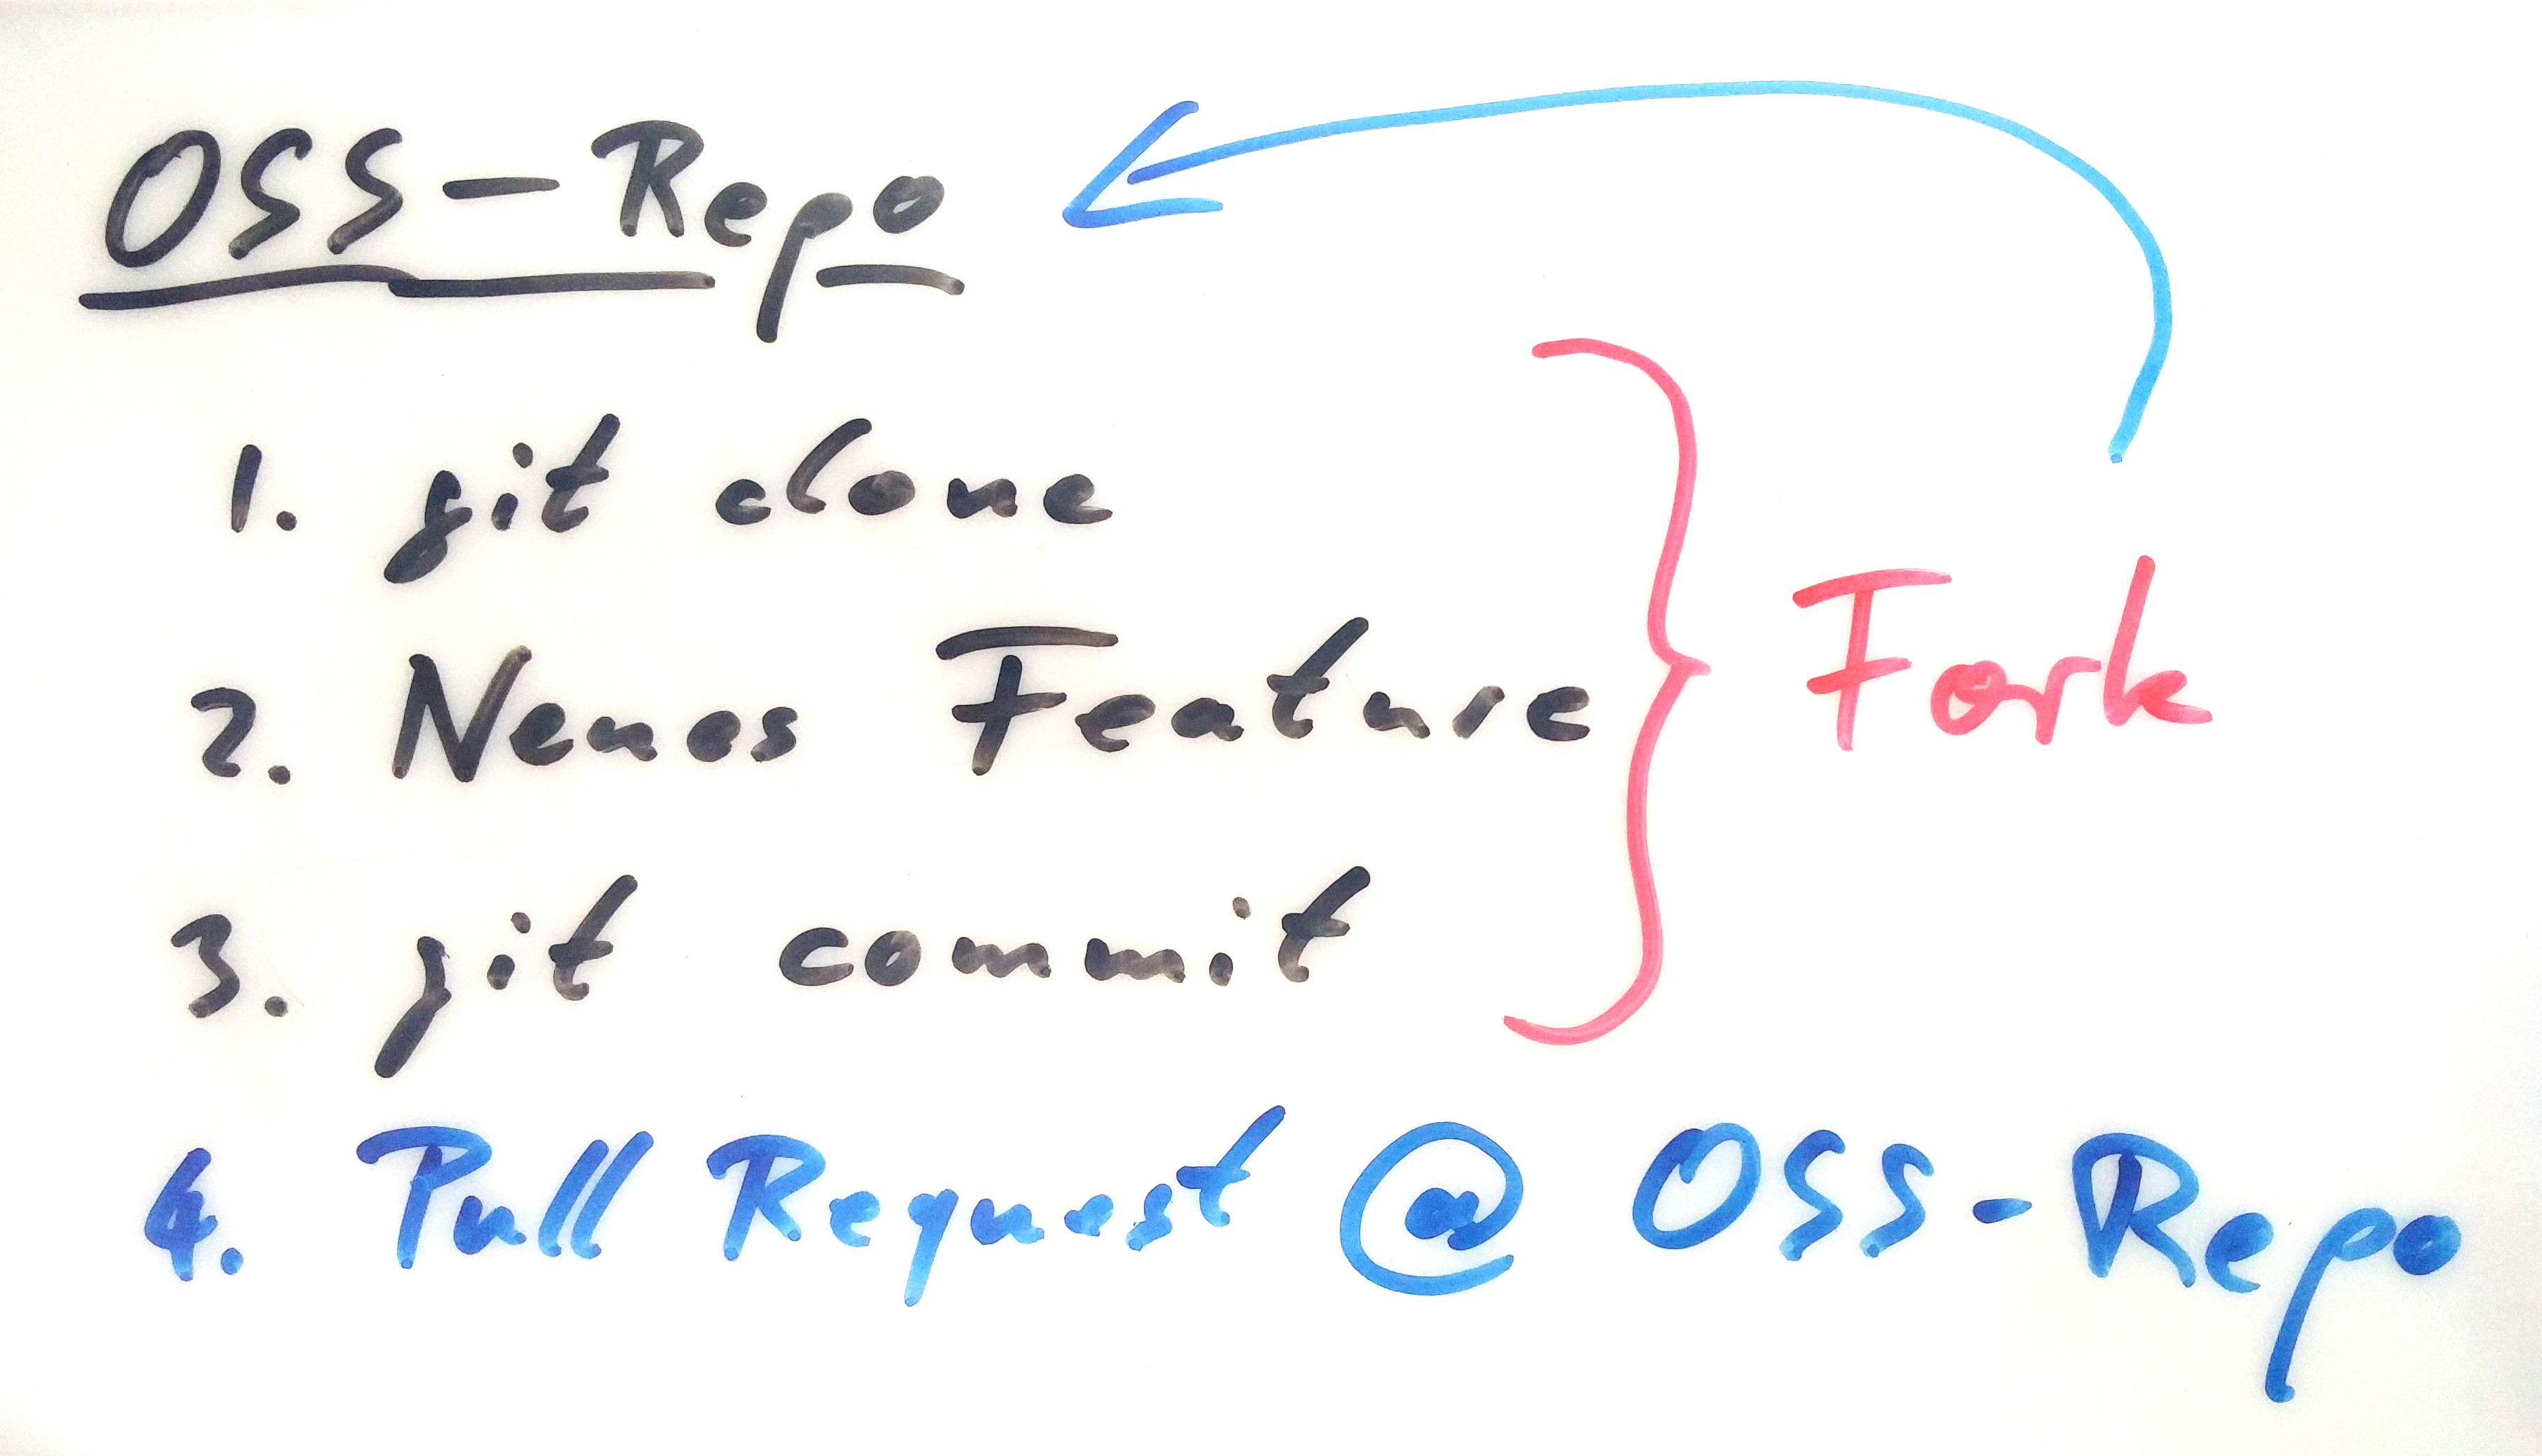 OSS-Repo
1. git clone
2. Neues Feature
3. git commit
Fork
4. Pull Request @ OSS-Repo